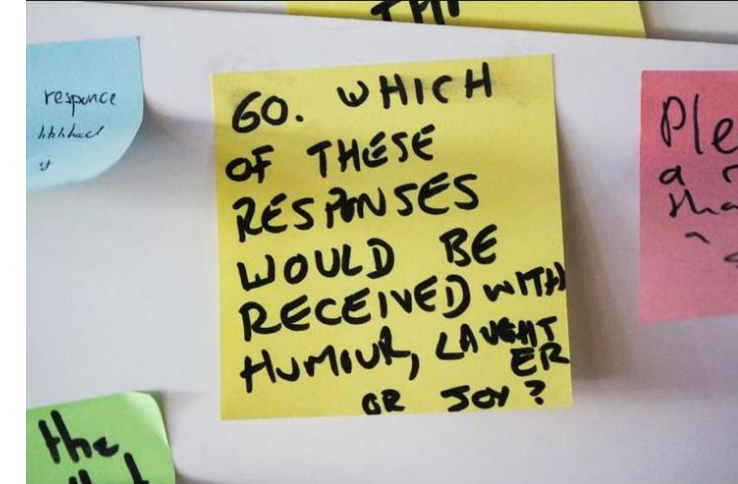 responce
60. WHICH
OF THESE
RESPONSES
WOULD BE
RECEIVED WITH
HUMOUR, LAUGHT
ER
OR JOY?
Ple
a
sha
the